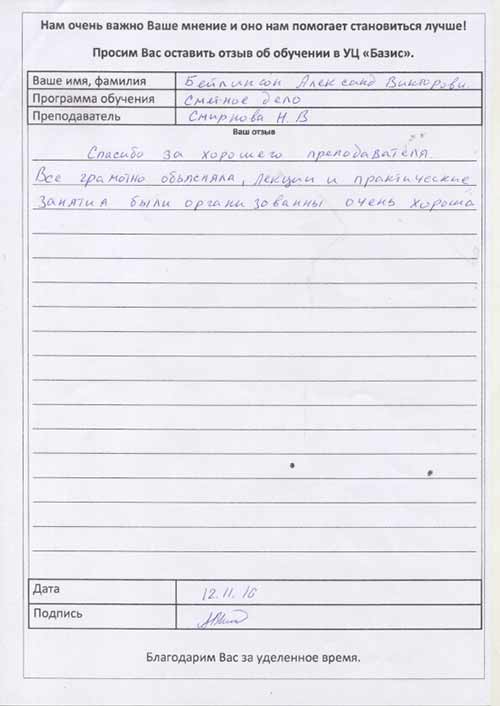 Нам очень важно Ваше мнение и оно нам помогает становиться лучше!
Просим Вас оставить отзыв об обучении в УЦ «Базис».
Ваше имя, фамилия Бейлинсон Александ Викторови
Программа обучения Сметное дело
Преподаватель Смирнова Н. В
Ваш отзыв
Спасибо за хорошего преподавателя.
Все грамотно обьясняла, лекции и практические
занятия были организованны очень хорошо
Дата 12.11.16
Подпись
Благодарим Вас за уделенное время.